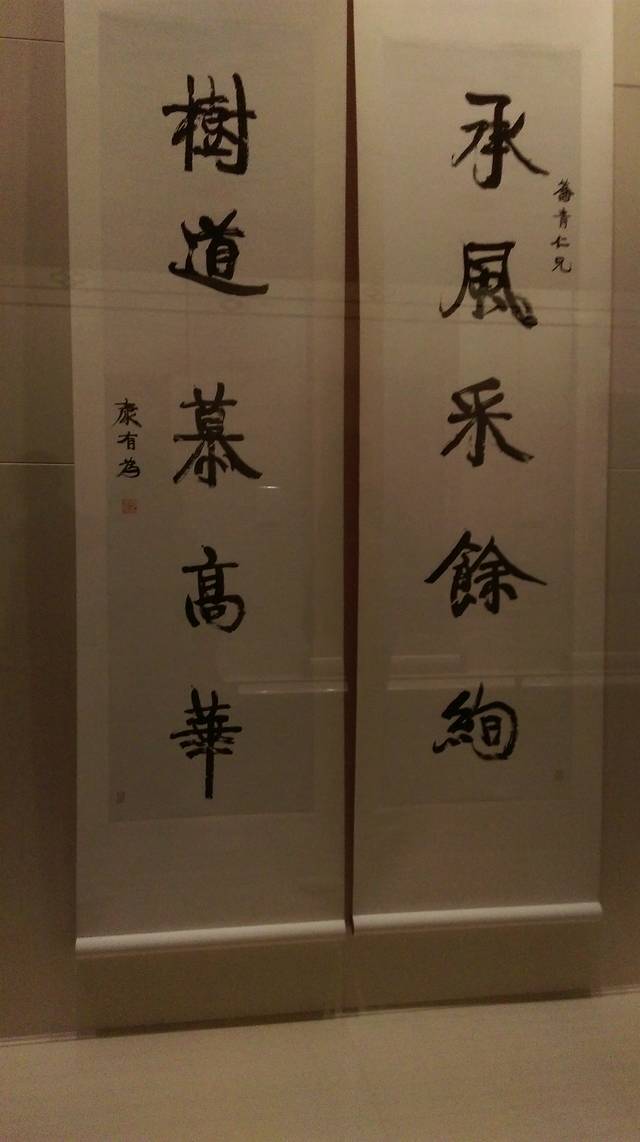 承風采餘絢
蕃青仁兄
樹道慕高華
康有為